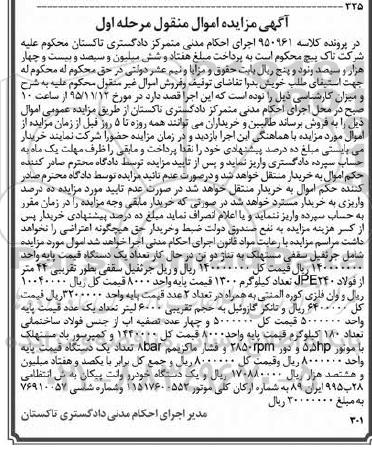 ۳۲۵
آگهی مزایده اموال منقول مرحله اول
در پرونده کلاسه ۹۵۰۹۶۱ اجرای احکام مدنی متمرکز دادگستری تاکستان محکوم علیه
شرکت تاک پیچ محکوم است به پرداخت مبلغ هفتاد و شش میلیون و سیصد و بیست و چهار
هزار و سیصد ونود و پنج ریال بابت حقوق و مزایا و نیم عشر دولتی در حق محکوم له محکوم له
جهت استیفای طلب خویش بدوا تقاضای توقیف وفروش اموال غیر منقول محکوم علیه به شرح
و میزان کارشناسی ذیل را نموده است که این اجرا قصد دارد در مورخ ۹۵/۱۱/۱۲ از ساعت ۱۰
صبح در محل اجرای احکام مدنی متمرکز دادگستری تاکستان از طریق مزایده عمومی اموال
ذیل را به فروش برساند طالبین و خریداران می توانند همه روزه تا ۵ روز قبل از زمان مزایده از
اموال مورد مزایده با هماهنگی این اجرا بازدید و در زمان مزایده حضورا شرکت نمایند خریدار
می بایستی مبلغ ده درصد پیشنهادی خود را نقدا پرداخت و مابقی را ظرف مهلت یک ماه به
حساب سپرده دادگستری واریز نماید و پس از تایید مزایده توسط دادگاه محترم صادر کننده
حکم اموال به خریدار منتقل خواهد شد و درصورت عدم تایید مزایده توسط دادگاه محترم صادر
کننده حکم اموال به خریدار منتقل خواهد شد در صورت عدم تایید مورد مزایده ده درصد
واریزی به خریدار مسترد خواهد شد در صورتی که خریدار مابقی وجه مزایده را در زمان مقرر
به حساب سپرده واریز ننماید و یا اعلام انصراف نماید مبلغ ده درصد پیشنهادی خریدار پس
از کسر هزینه مزایده به نفع صندوق دولت ضبط وخریدار حق هیچگونه اعتراضی را نخواهد
داشت مراسم مزایده با رعایت مواد قانون اجرای احکام مدنی اجرا خواهد شد اموال مورد مزایده
شامل جرثقیل سقفی مستهلک به تناژ دو تن در حال کار تعداد یک دستگاه قیمت پایه واحد
ریال قیمت کل ریال و ریل جرثقیل سقفی بطور تقریبی ۴۴ متر
از فولاد تعداد کیلوگرم ۱۳۰۰ قیمت پایه واحد ۸۰۰۰ قیمت کل ریال
ریال و وان فلزی کوره المنتی به همراه در تعداد ۲ عدد قیمت پایه واحد ریال قیمت
کل ریال و تانکر گازوئیل به حجم تقریبی ۶۰۰۰ لیتر تعداد یک عدد قیمت پایه
واحد قیمت کل و چهار عدد تصفیه آب از جنس فولاد ساختمانی
تعداد ۱۸۰ کیلوگرم قیمت پایه واحد ۸۰۰۰ قیمت کل ریال و کمپرسور باد مستهلک
با موتور 5,5hp و دور 2850rpm و فشار ماکزیمم 8bar تعداد یک دستگاه قیمت پایه
واحد ریال وقیمت کل ریال و جمع کل برابر با یکصد و هفتاد میلیون
و هشتصد هزار ریال ریال و یک دستگاه خودرو وانت پیکان به ش انتظامی
۲۸ب۹۹۵ ایران ۸۹ به شماره ارکان کلی موتور ۱۱۵۱۷۶۰۵۵۲ وشماره شاسی
به مبلغ ریال
مدیر اجرای احکام مدنی دادگستری تاکستان
۳۰۱